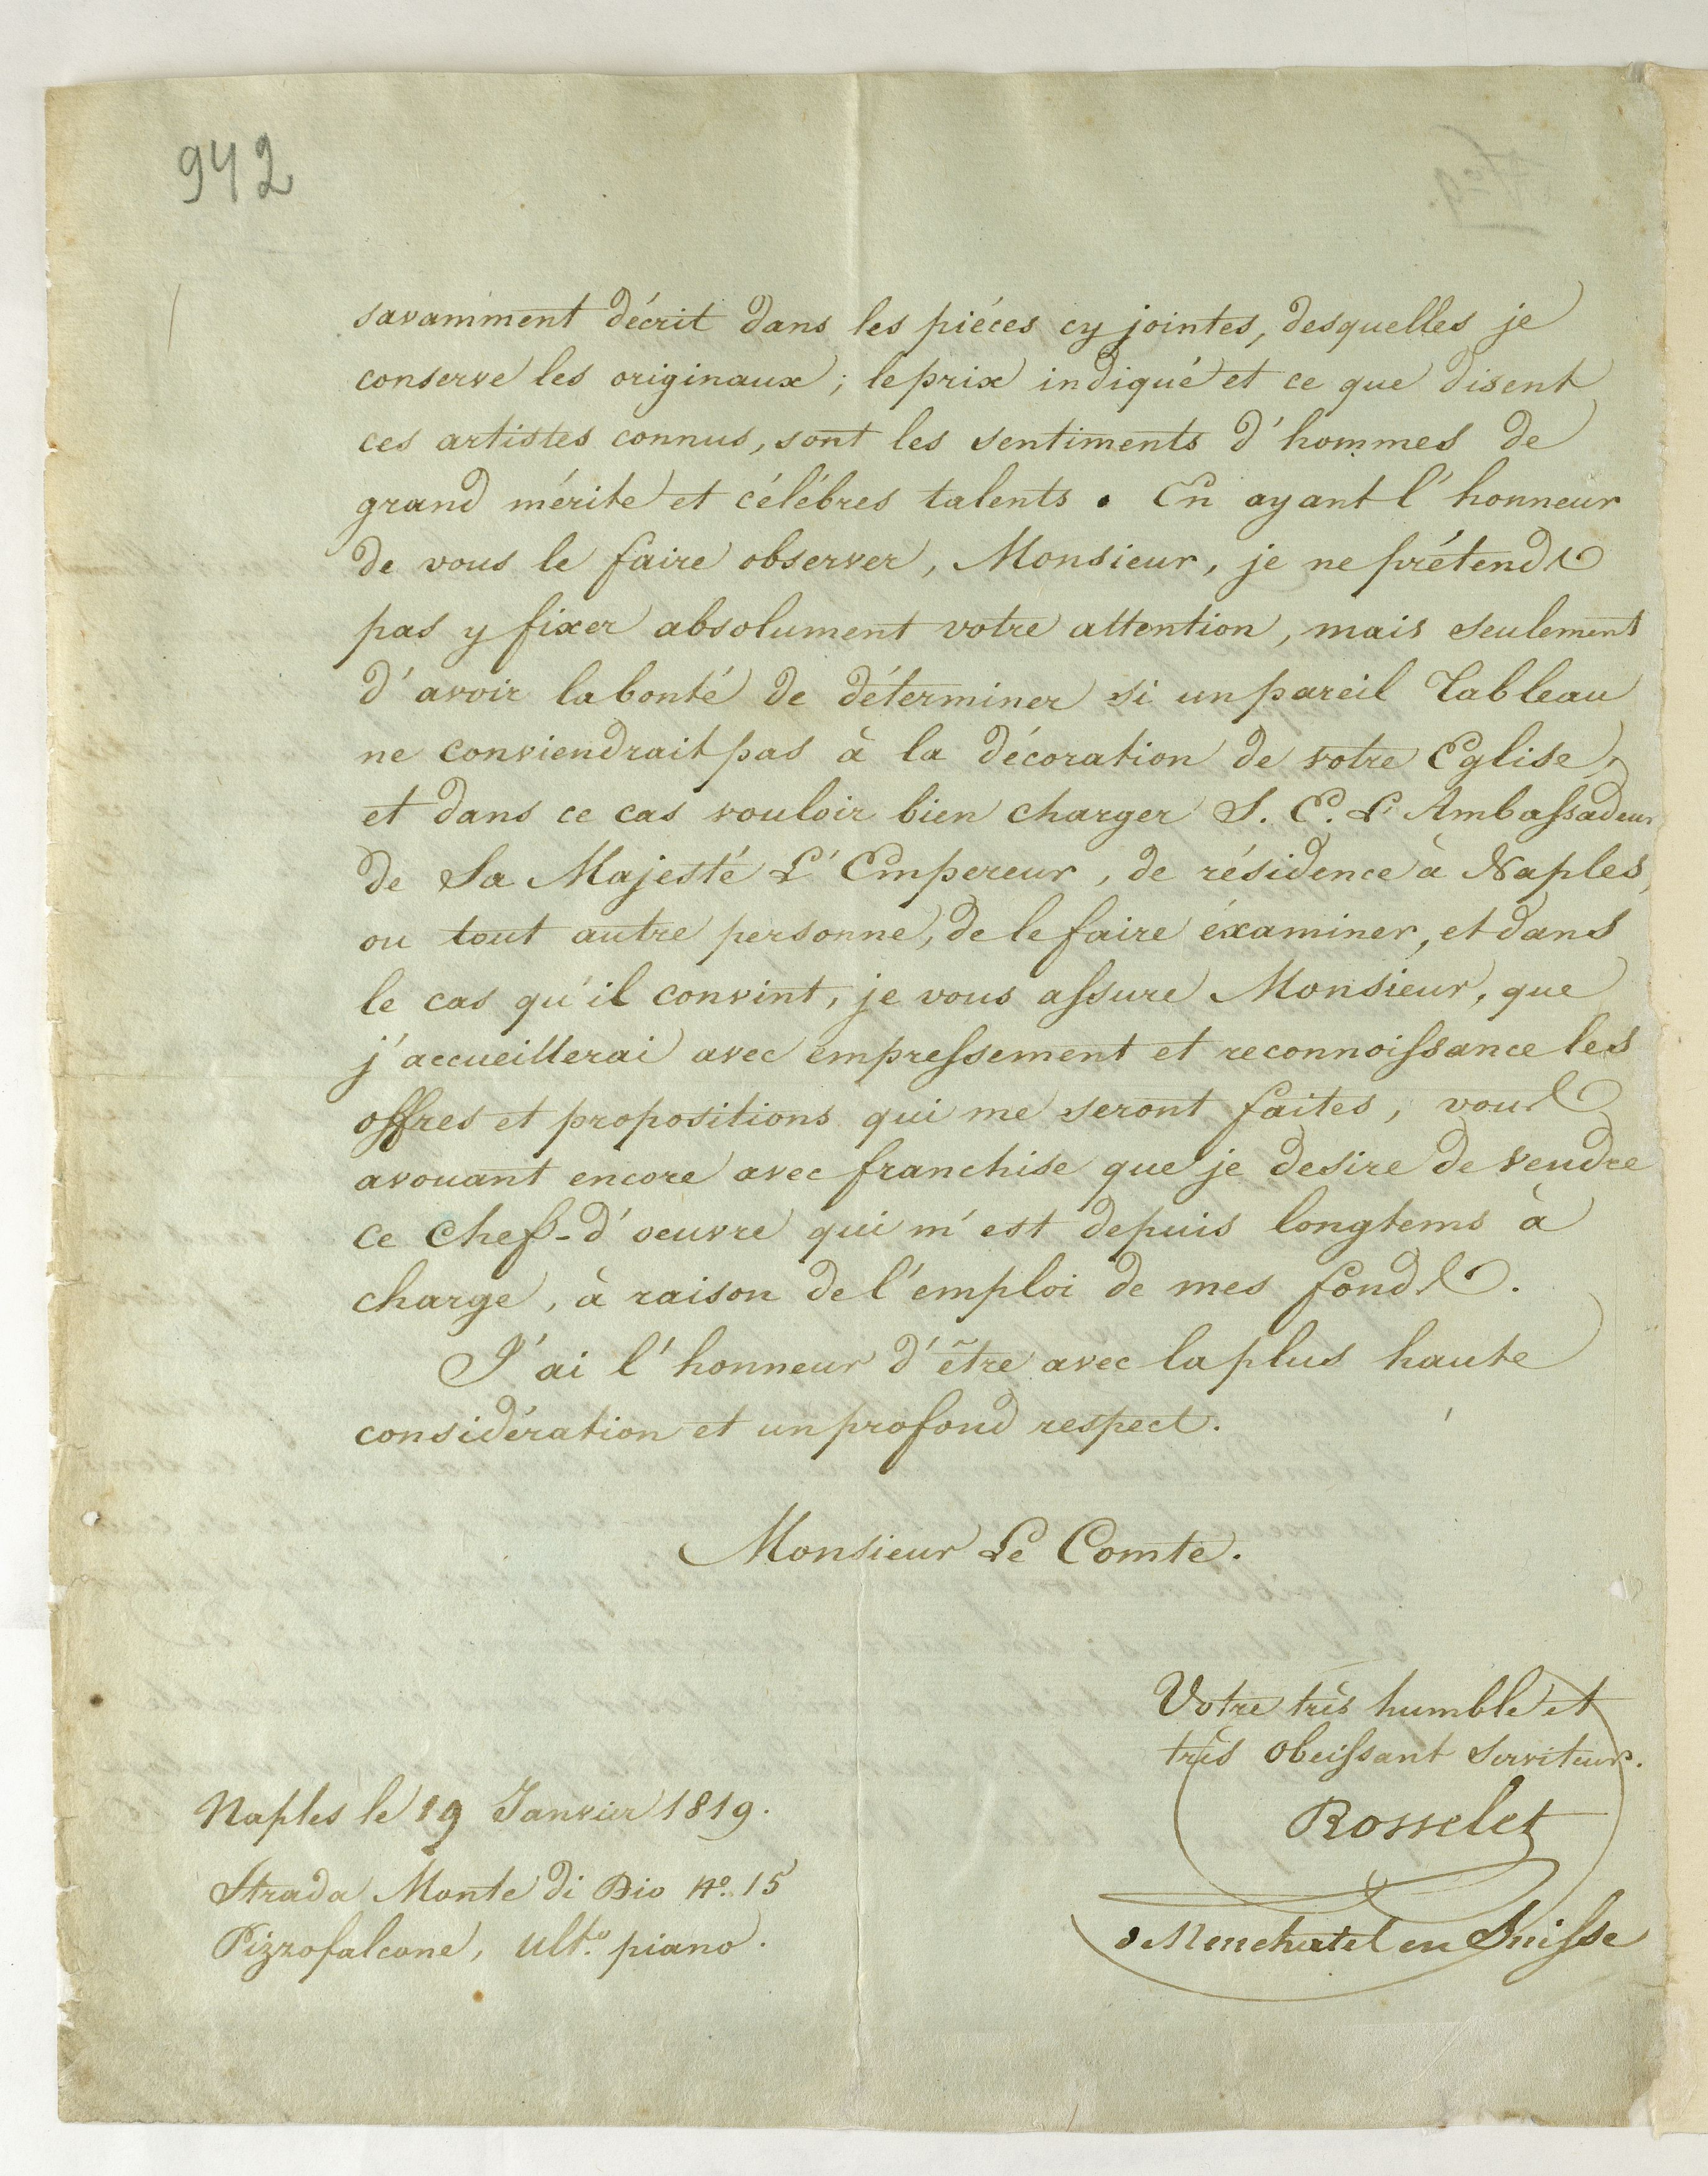 942
savamment décrit dans les piéces cy jointes, desquelles je
conserve les originaux; le prix indiqué et ce que disent
ces artistes connus, sont les sentiments d'hommes de
grand mérite et célébres talents. En ayant l'honneur
de vous le faire observer, Monsieur, je ne prétends
pas y fixer absolument votre attention, mais seulement
d'avoir la bonté de déterminer si un pareil Tableau
ne conviendrait pas à la décoration de votre Eglise,
et dans ce cas vouloir bien charger S. E. L'Ambassadeur
de Sa Majesté L'Empereur, de résidence à Naples,
ou tout autre personne, de le faire éxaminer, et dans
le cas qu'il convint, je vous assure Monsieur, que
j'accueillerai avec empressement et reconnoissance les
offres et propositions qui me seront faites, vous
avouant encore avec franchise que je desire de vendre
ce chef-d'oeuvre qui m'est depuis longtems à
charge, à raison de l'emploi de mes fonds.
J'ai l'honneur d'être avec la plus haute
considération et un profond respect.
Monsieur Le Comte.
Votre très humble et
très obeissant serviteur.
Rosselet
de Neuchatel en Suisse
Naples le 19 Janvier 1819.
Strada Monte di Dio No. 15
Pizzofalcone, ulto. piano.